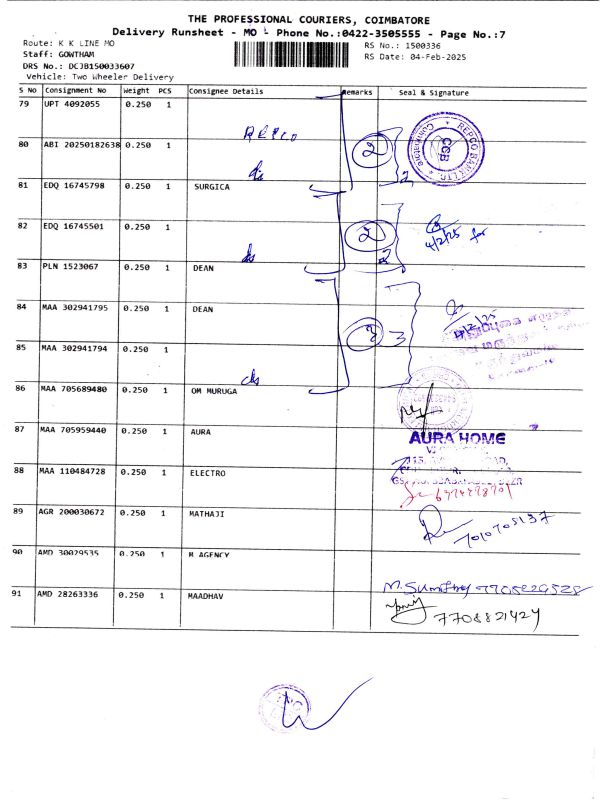 THE PROFESSIONAL COURIERS, COIMBATORE
Delivery Runsheet - MO - Phone No.:0422-3505555 - Page No.:7
Route: K K LINE MO
Staff: GOWTHAM
DRS No.: DCJB150033607
Vehicle: Two Wheeler Delivery
RS No.: 1500336
RS Date: 04-Feb-2025
S No Consignment No Weight PCS Consignee Details Remarks Seal & Signature
79 UPT 4092055 0.250 1
REPCO
REPCO BANK LTD. * Coimbatore *
CCB
80 ABI 20250182638 0.250 1
2
2
81 EDQ 16745798 0.250 1 SURGICA
82 EDQ 16745501 0.250 1
2
4/2/25
83 PLN 1523067 0.250 1 DEAN
84 MAA 302941795 0.250 1 DEAN
3
3
85 MAA 302941794 0.250 1
86 MAA 705689480 0.250 1 OM MURUGA
87 MAA 705959440 0.250 1 AURA
AURA HOME
88 MAA 110484728 0.250 1 ELECTRO
89 AGR 200030672 0.250 1 MATHAJI
7010705137
90 AMD 30029535 0.250 1 M AGENCY
91 AMD 28263336 0.250 1 MAADHAV
7708821424